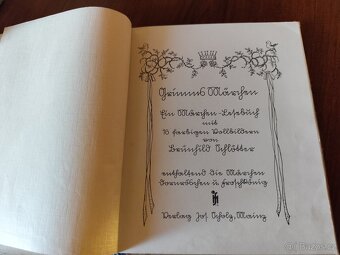 Grimms Märchen
Ein Märchen-Lesebuch
mit
16 farbigen Vollbildern
von
Brünhild Schlötter
enthaltend die Märchen
Dornröschen u. Froschkönig
Verlag Jos. Scholz, Mainz